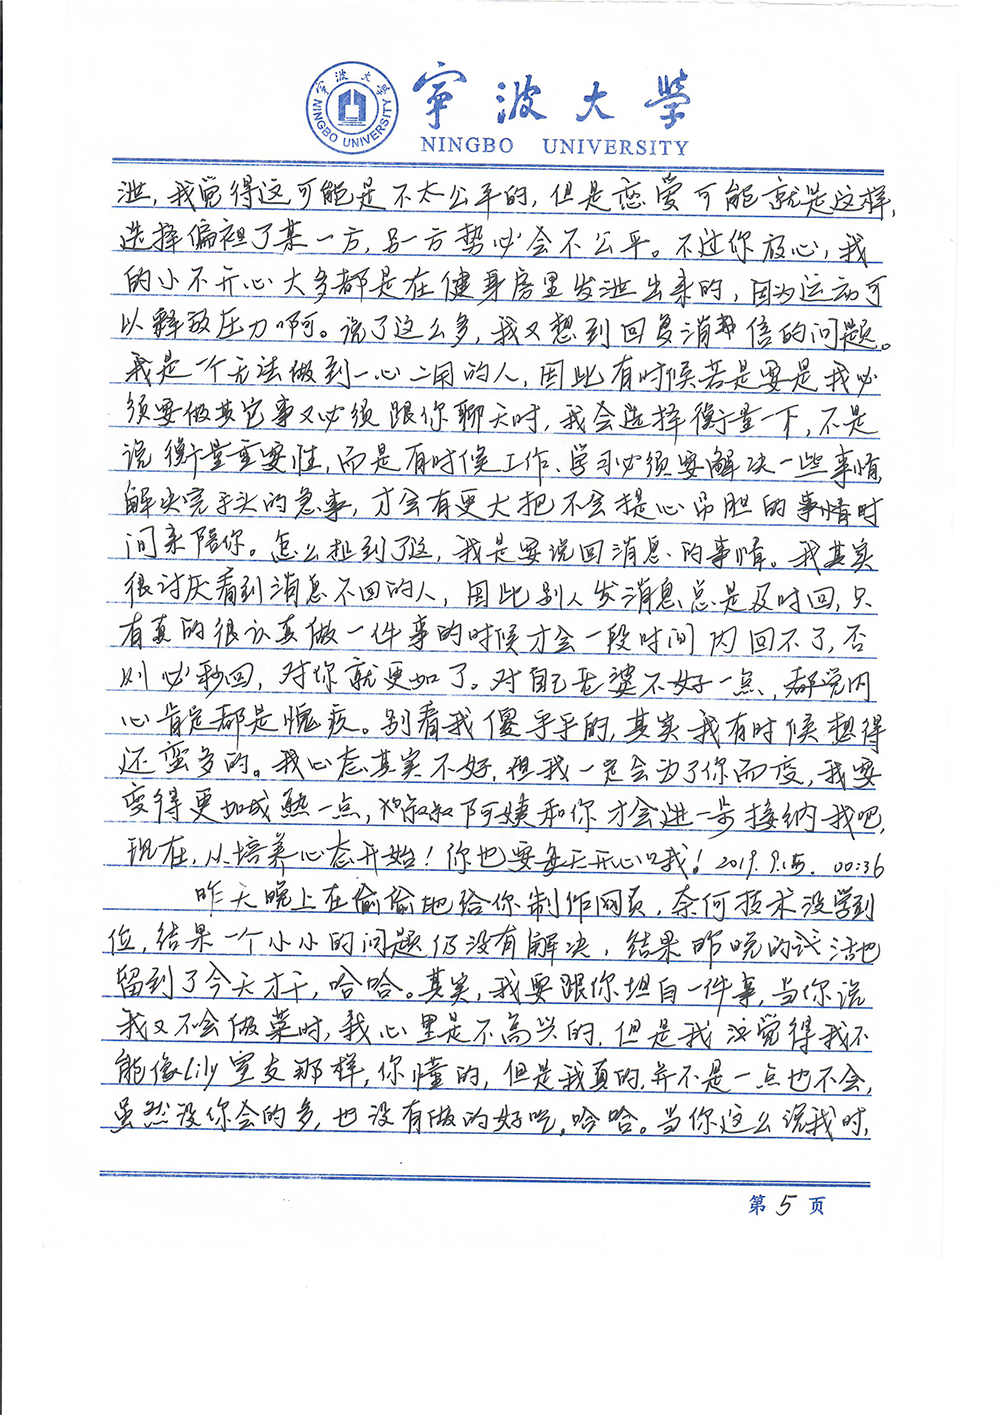 宁波大学
NINGBO UNIVERSITY
宁波大学
NINGBO UNIVERSITY
泄，我觉得这可能是不太公平的，但是恋爱可能就是这样，
选择偏袒了某一方，另一方势必会不公平。不过你放心，我
的小不开心大多都是在健身房里发泄出来的，因为运动可
以释放压力啊。说了这么多，我又想到回复消信的问题。
我是一个无法做到一心二用的人，因此有时候若是要是我必
须要做其它事又必须跟你聊天时，我会选择衡量一下，不是
说衡量重要性，而是有时候工作、学习必须要解决一些事情，
解决完手头的急事，才会有更大把不会提心吊胆的事情时
间来陪你。怎么扯到了这，我是要说回消息的事情。我其实
很讨厌看到消息不回的人，因此别人发消息总是及时回，只
有真的很认真做一件事的时候才会一段时间内回不了，否
则必秒回，对你就更如了。对自己老婆不好一点，都觉内
心肯定都是愧疚。别看我傻乎乎的，其实我有时候想得
还蛮多的。我心态其实不好，但我一定会为了你而变，我要
变得更加成熟一点，你叔叔阿姨和你才会进一步接纳我吧，
现在，从培养心态开始！你也要每天开心口我！2019.9.15. 00:36
昨天晚上在偷偷地给你制作网页，奈何技术没学到
位，结果一个小小的问题仍没有解决，结果昨晚的活把
留到了今天才干，哈哈。其实，我要跟你坦白一件事，当你说
我又不会做菜时，我心里是不高兴的，但是我觉得我不
能像Lily室友那样，你懂的，但是我真的，并不是一点也不会，
虽然没你会的多，也没有做的好吃，哈哈。当你这么说我时，
第5页